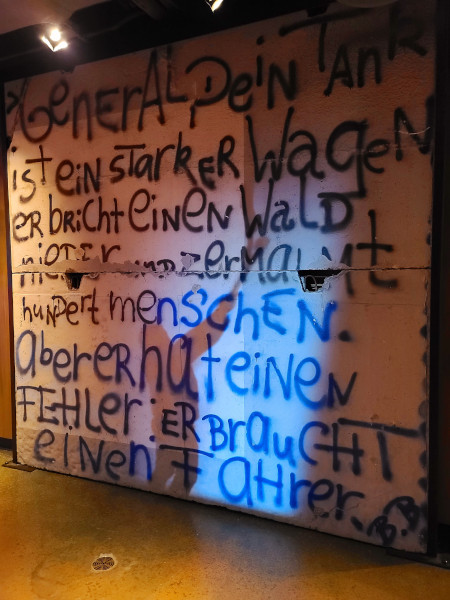 GENERAL, Dein TANK
ist ein STARKER WAGEN
ER bricht einen WALD
nieder und zermalmt
hundert menschen.
Aber er hat einen
FEHLER: ER BRAUCHT
EINEN FAHRER.
B.B.